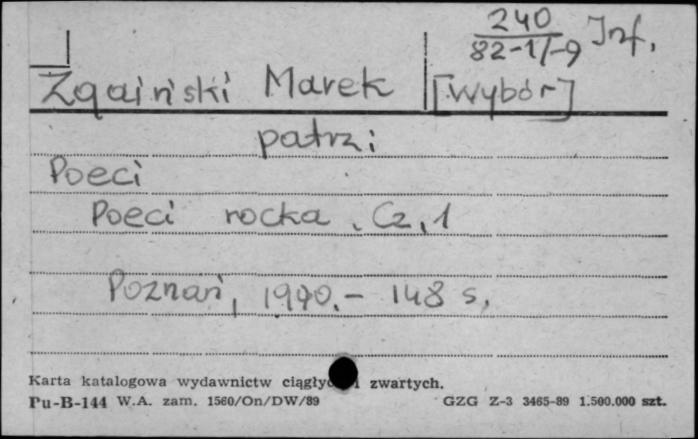 240
82-1/-9 Inf.
Zgaiński Marek [Wybór]
patrz:
Poeci
Poeci rocka. Cz. 1
Poznań, 1990. - 148 s.
Karta katalogowa wydawnictw ciągłyc i zwartych.
Pu-B-144 W.A. zam. 1560/On/DW/89 GZG Z-3 3465-89 1.500.000 szt.